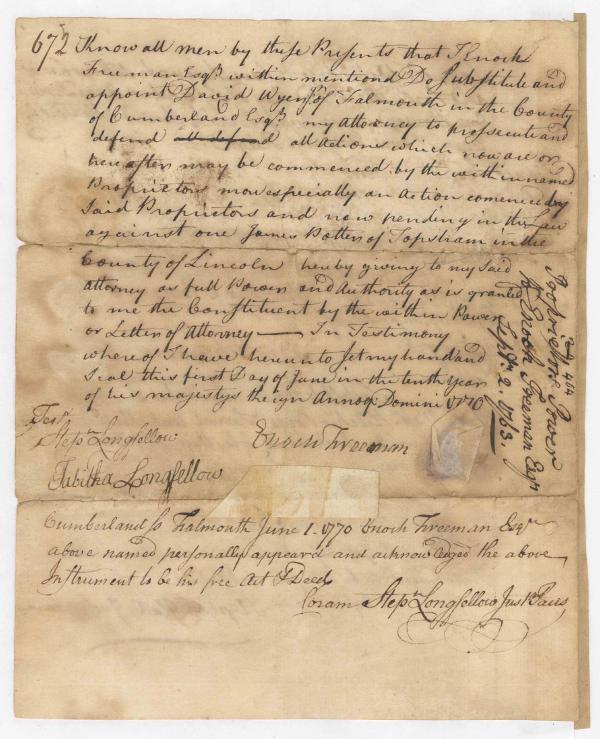 672 Know all men by these Presents that I Enoch
Freeman Esqr within mentiond Do Substitute and
appoint David Wyer Jr of Falmouth in the County
of Cumberland Esqr my Attorney to prosecute and
defend all Actions which now are or
hereafter may be commenced by the within named
Proprietors more especially an Action comenced by
Said Proprietors and now pending in the Law
against one James Potter of Topsham in the
County of Lincoln hereby giving to my Said
attorney as full Power and Authority as is granted
to me the Constituent by the within Power
or Letter of Attorney — In Testimony
where of I have hereunto Set my hand and
Seal this first Day of June in the tenth Year
of his majestys Reign Annoq Domini 1770
Test
Stepn Longfellow
Enoch Freeman
Tabitha Longfellow
Cumberland Ss Falmouth June 1. 1770 Enoch Freeman Esqr
above named personally appeard and acknowledged the above
Instrument to be his free Act & Deed
Coram Stepn Longfellow Just Pacis
Proprietors Power
to Enoch Freeman Esqr
Septr. 2. 1763
404